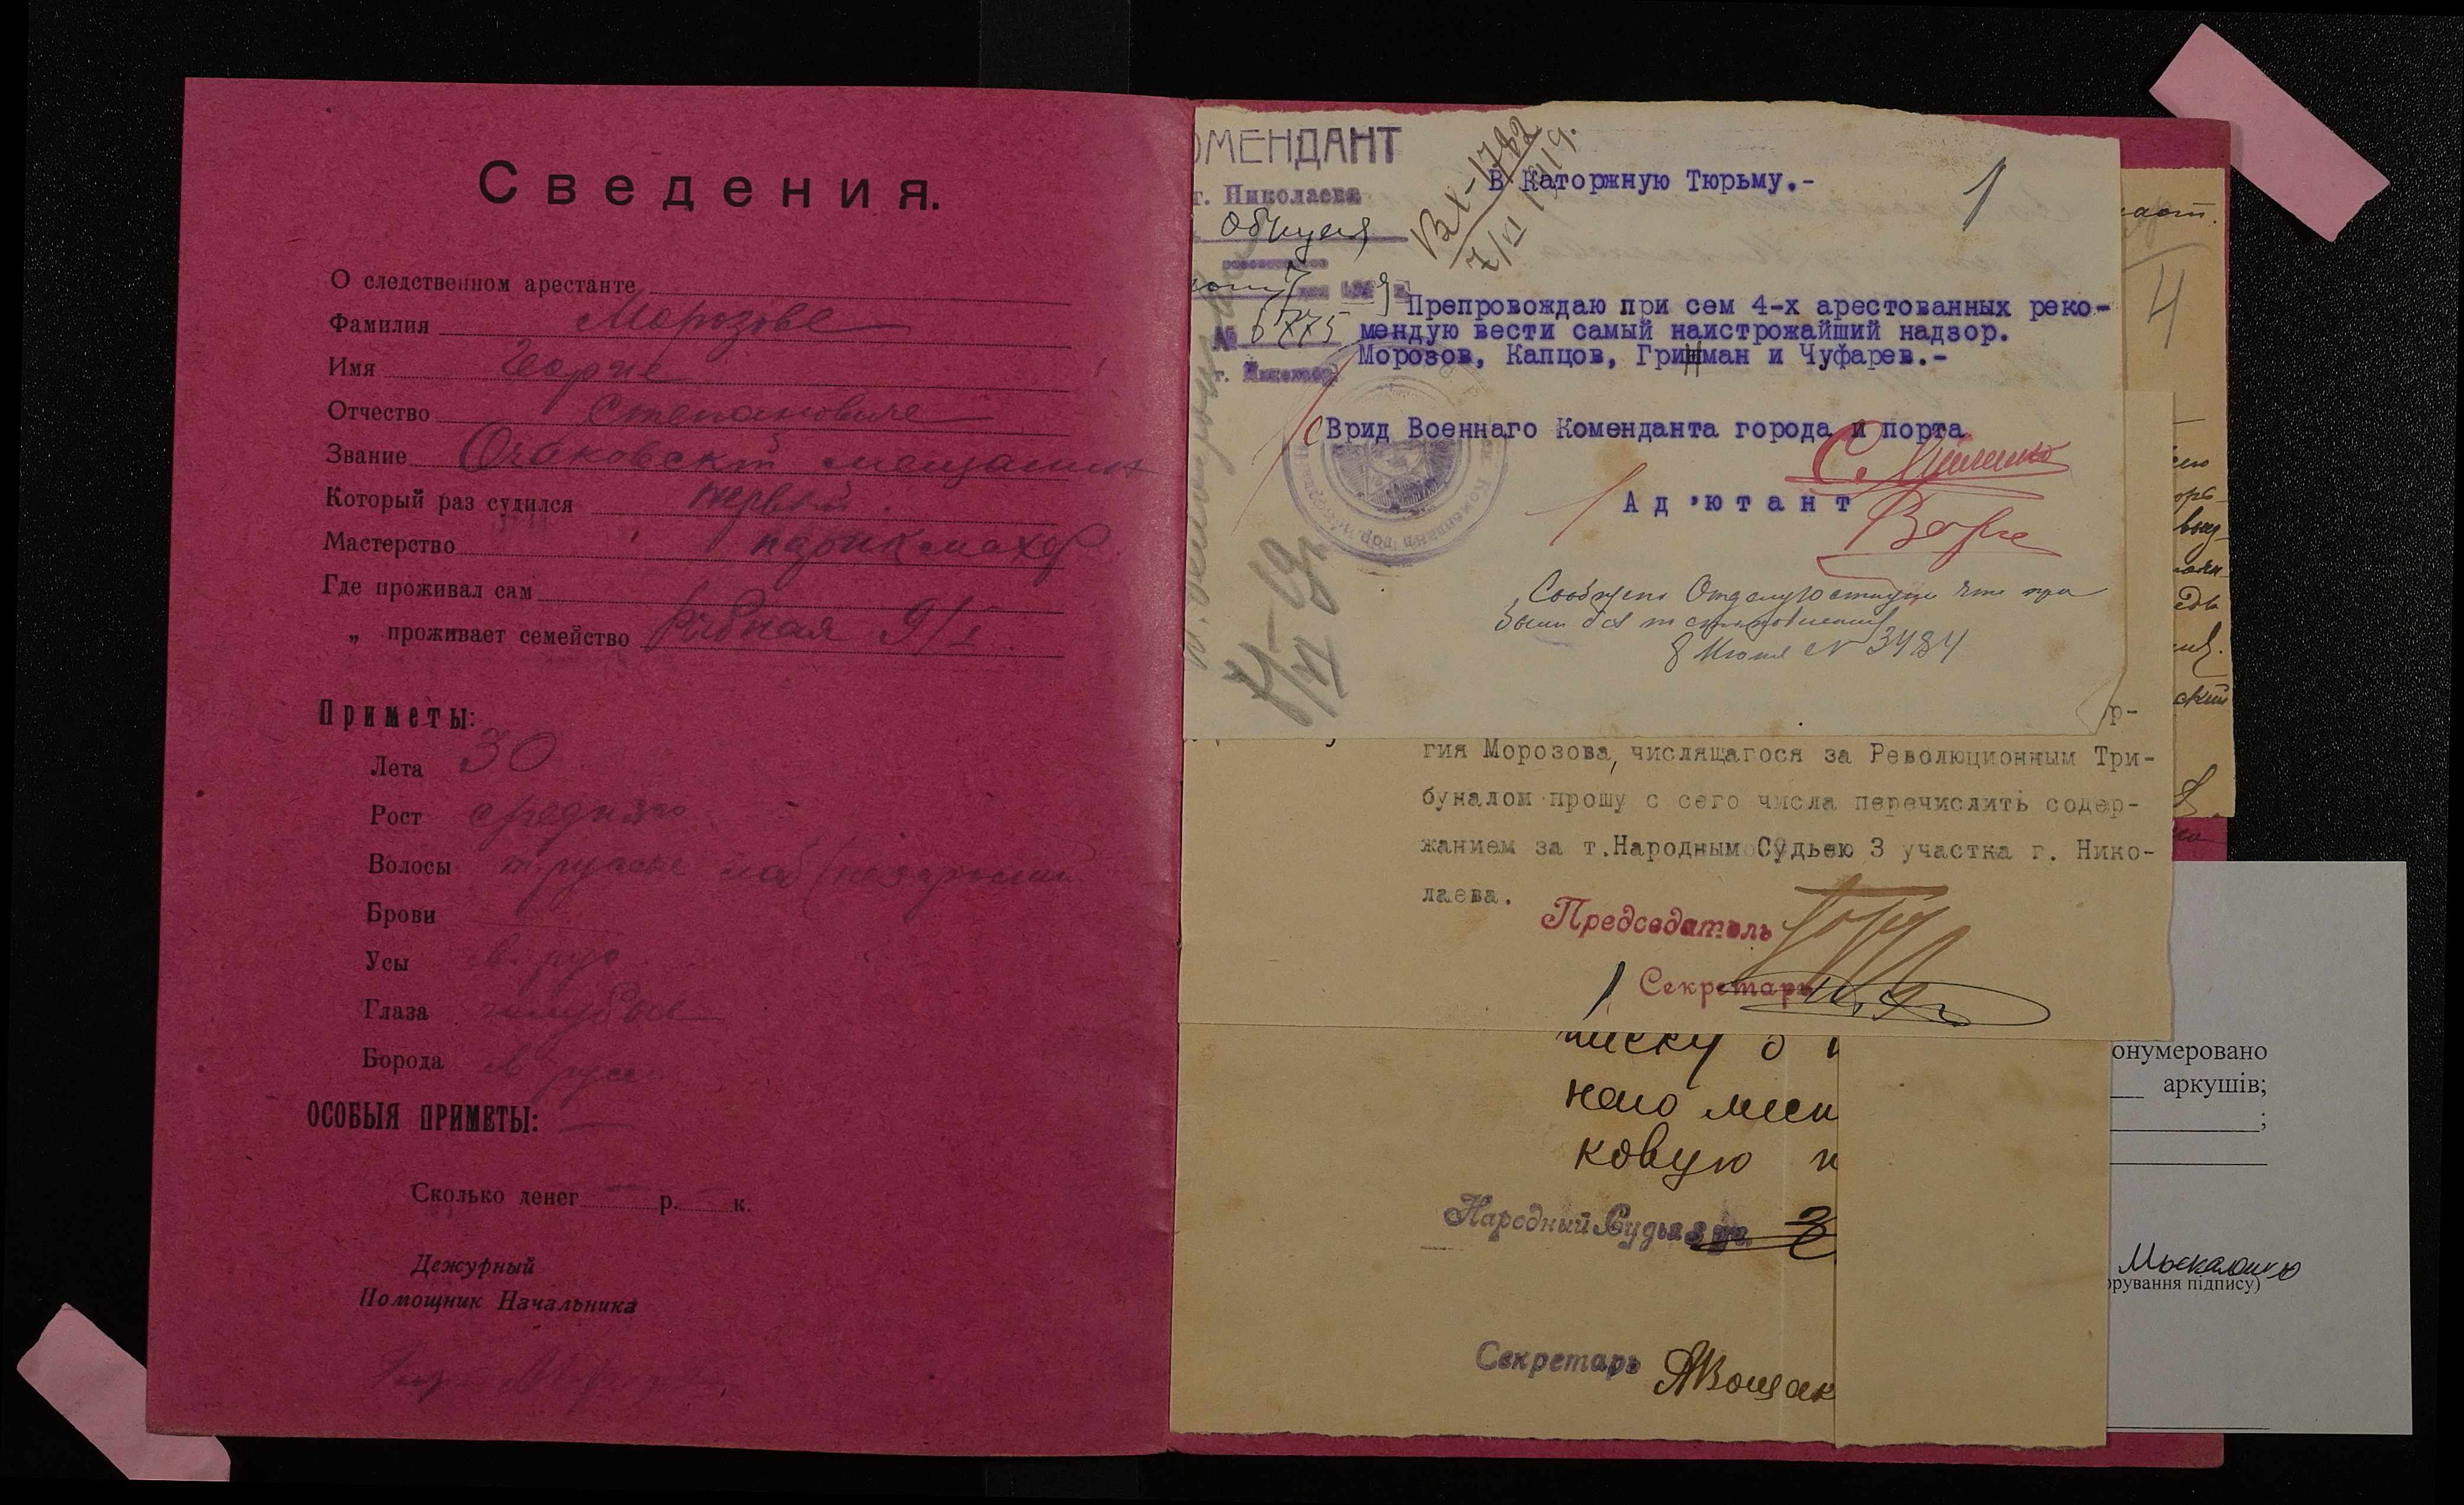 Сведения.
О следственном арестанте
Фамилия Морозове
Имя Георгие
Отчество Степановиче
Звание Очаковский мещанин
Который раз судился первый
Мастерство парикмахер
Где проживал сам
„ проживает семейство Рыбная 9/1
Приметы:
Лета 30
Рост средний
Волосы т. русые
Брови
Усы св. рус
Глаза голубые
Борода св рус
ОСОБЫЯ ПРИМЕТЫ:
Сколько денег р. к.
Дежурный
Помощник Начальника
ОМЕНДАНТ
г. Николаева
Общая
№ 6775
г. Николаев
Вх-1782
7/VI 1919.
В Каторжную Тюрьму.-
1
Препровождаю при сем 4-х арестованных реко-
мендую вести самый наистрожайший надзор.
Морозов, Капцов, Гринман и Чуфарев.-
Врид Военнаго Коменданта города и порта
Ад'ютант
Сообщено что при
8 Июня № 3484
7/VI-19г.
р-
гия Морозова, числящагося за Революционным Три-
буналом прошу с сего числа перечислить содер-
жанием за т.Народным Судьею 3 участка г. Нико-
лаева.
Председатель
Секретарь
писку о
наго мест
ковую
Народный Судья 3 уч. 3
Секретарь
4
онумеровано
аркушів;
;
рування підпису)